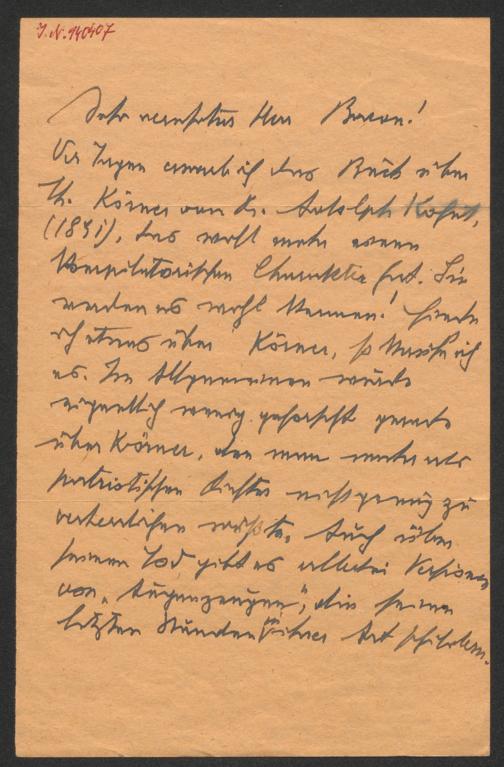 J.N. 140407
Sehr verehrter Herr Baron!
Vor Tagen erwarb ich das Buch über
Th. Körner von Dr. Adolph Kohut,
(1891), das wohl mehr einen
kompilatorischen Charakter hat. Sie
werden es wohl kennen! Finde
ich etwas über Körner, so kaufe ich
es. Im Allgemeinen wurde
eigentlich wenig geforscht gerade
über Körner, den man mehr als
patriotischen Dichter nicht genug zu
verherrlichen wußte. Auch über
seinen Tod gibt es allerlei Versionen
von „Augenzeugen“, die seine
letzten Stunden in ihrer Art schildern.